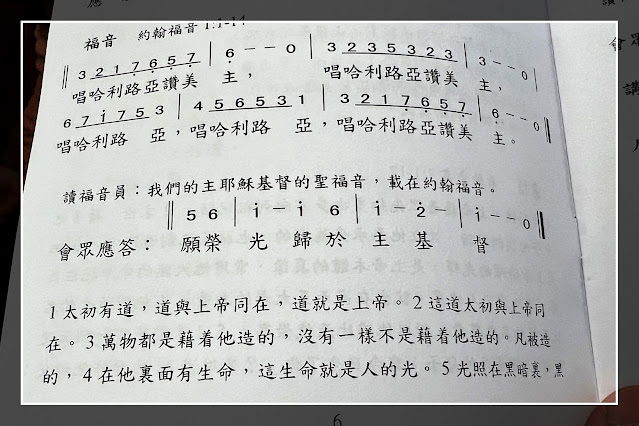 福音 約翰福音 1:1-14
3 2 1 7 6 5 7 | 6 – – 0 | 3 2 3 5 3 2 3 | 3 – – 0 |
唱哈利路亞讚美 主， 唱哈利路亞讚美 主，
6 7 1 7 5 3 | 4 5 6 5 3 1 | 3 2 1 7 6 5 7 | 6 – – 0
唱哈利路 亞，唱哈利路 亞，唱哈利路亞讚美 主。
讀福音員：我們的主耶穌基督的聖福音，載在約翰福音。
5 6 | i – i 6 | i – 2 – | i – – 0
會眾應答： 願榮 光 歸於 主 基 督
1 太初有道，道與上帝同在，道就是上帝。2 這道太初與上帝同
在。3 萬物都是藉着他造的，沒有一樣不是藉着他造的。凡被造
的，4 在他裏面有生命，這生命就是人的光。5 光照在黑暗裏，黑
6